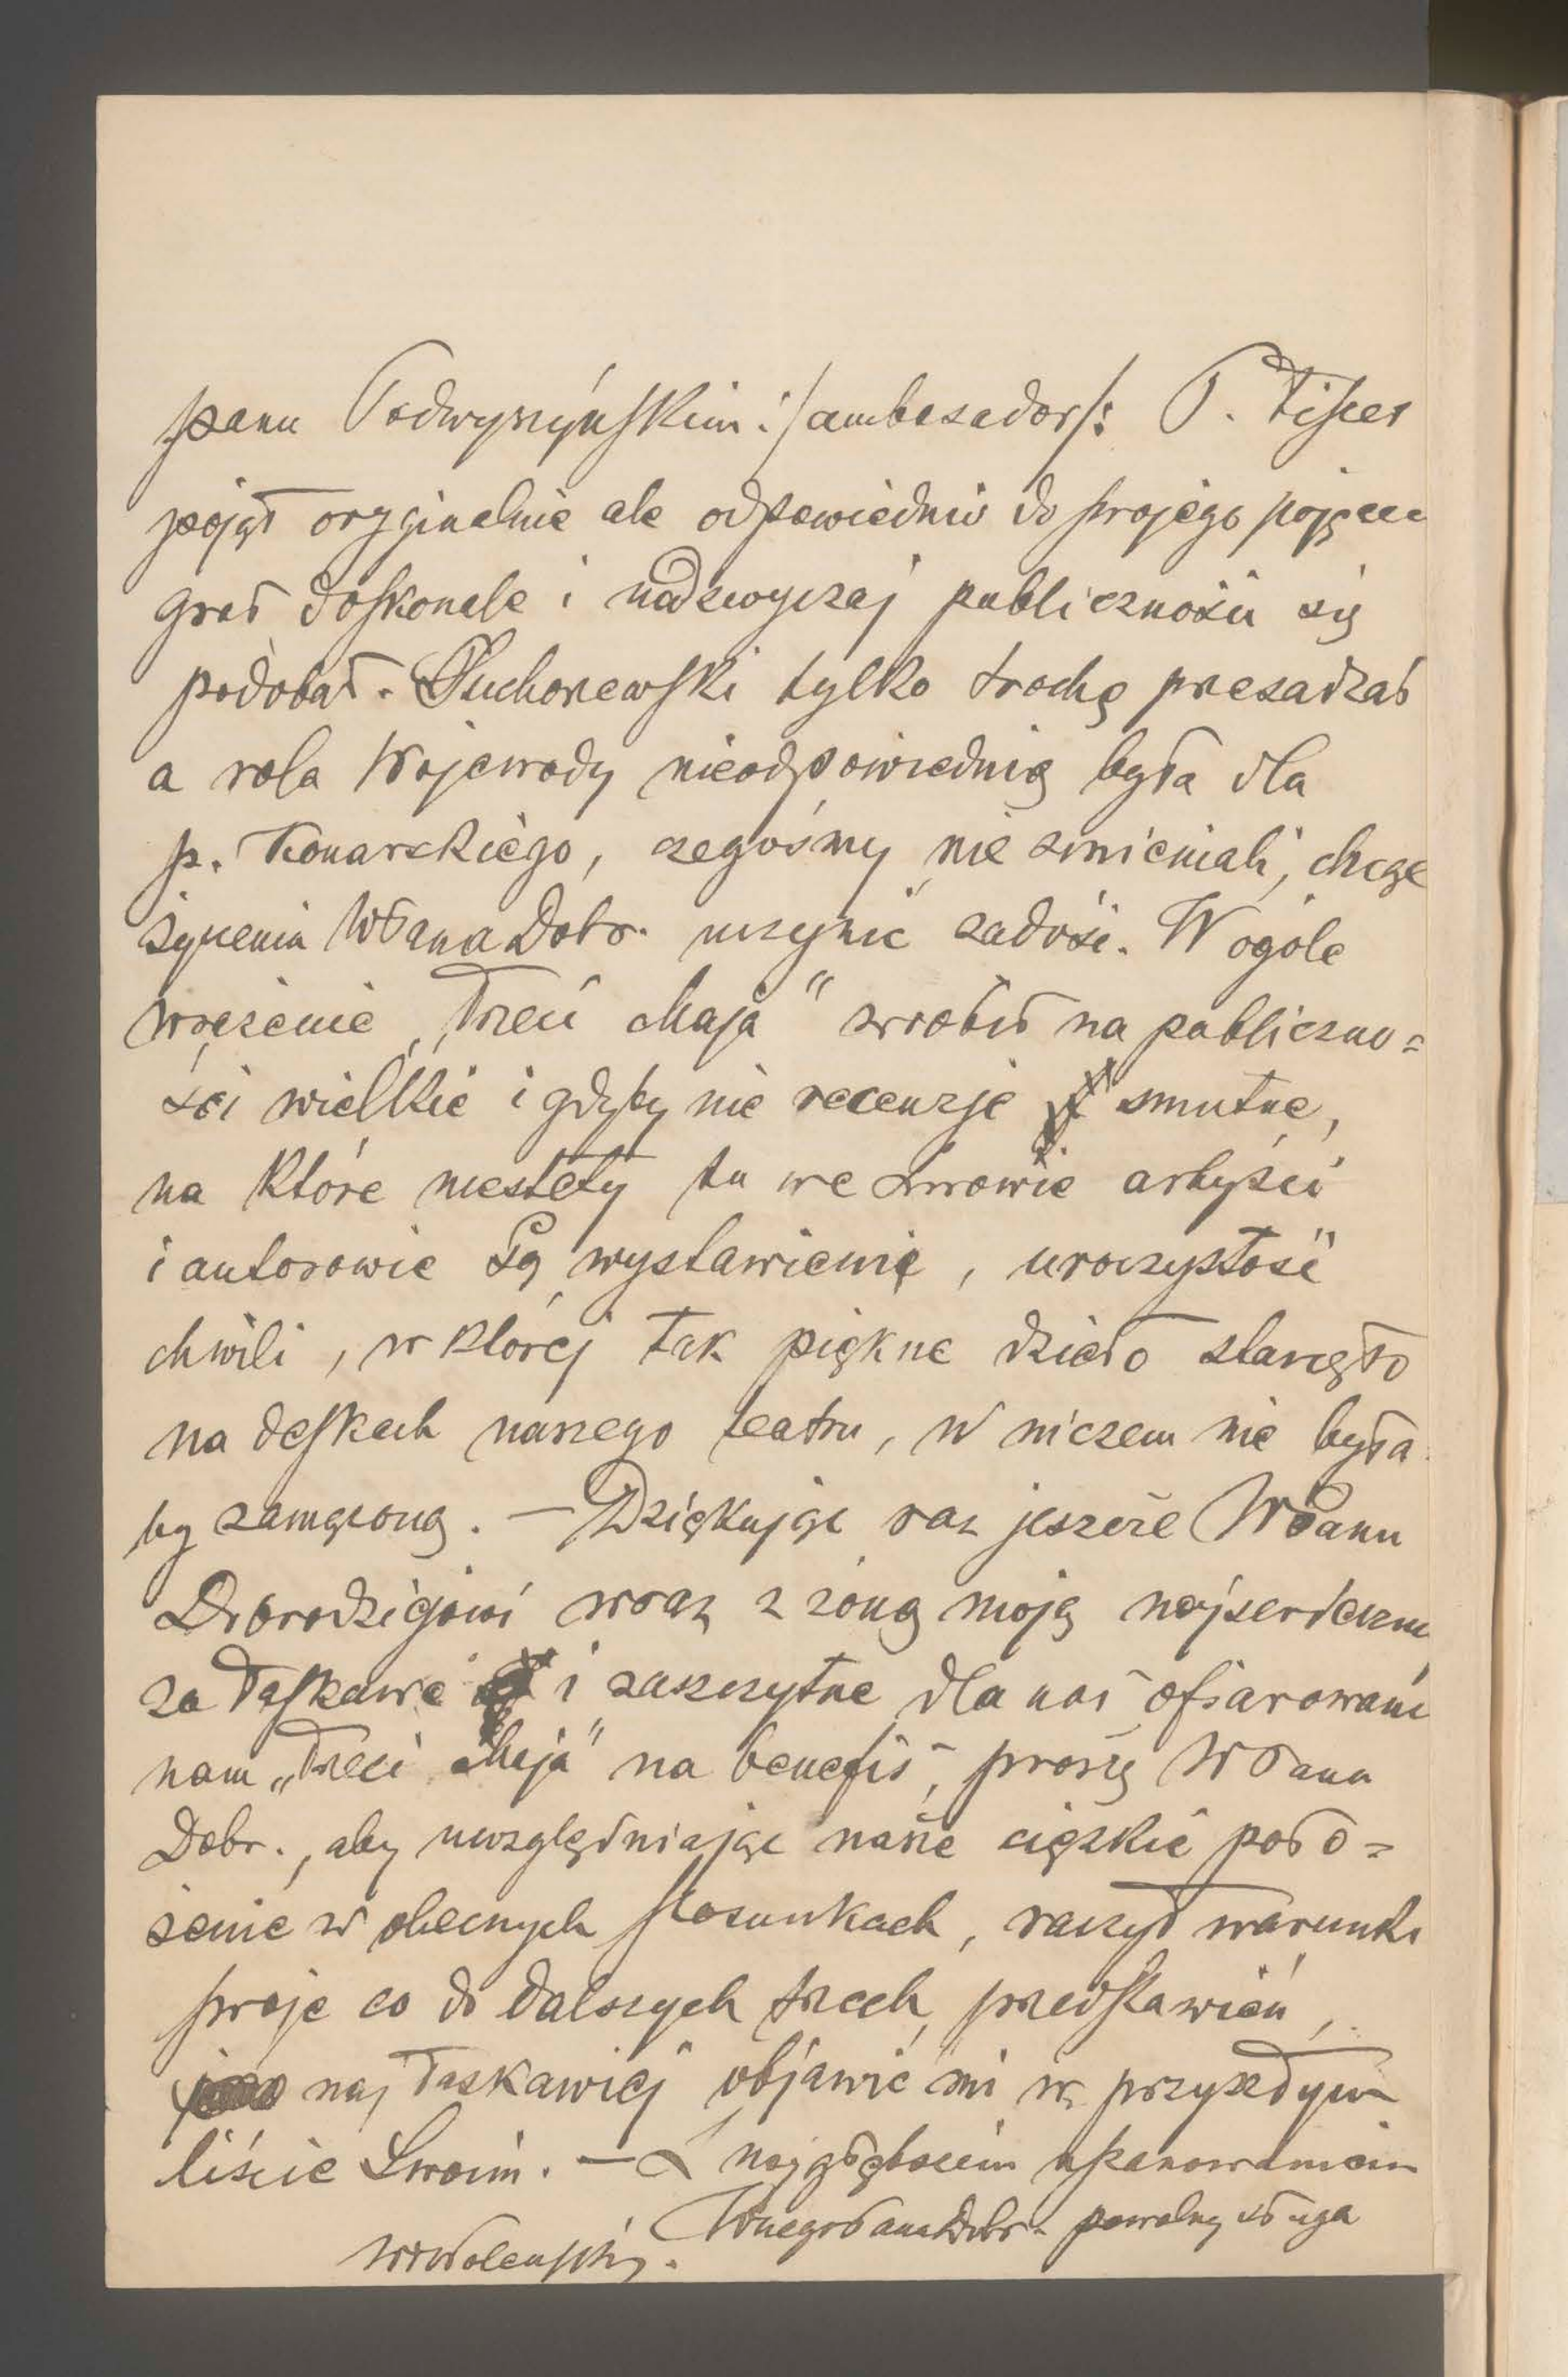 panu Podwyszyńskim :/ambasador/: P. Fiszer
pojął oryginalnie ale odpowiednio do swojego pojęcia
grał doskonale i nadzwyczaj publiczności się
podobał. Ruchorewski tylko trochę przesadzał
a rola Wojewody nieodpowiednią była dla
p. Konarskiego, czegośmy nie zmieniali, chcąc
życzeniu WPana Dobr. uczynić zadość. W ogóle
wrażenie „Trzeci Maja" zrobił na publiczno=
ści wielkie i gdyby nie recenzje smutne,
na które niestety tu we Lwowie artyści
i autorowie są wystawieni, uroczystość
chwili, w której tak piękne dzieło stanęło
na deskach naszego teatru, w niczem nie była
by zamąconą. — Dziękując raz jeszcze WPanu
Dobrodziejowi wraz z żoną moją najserdeczniej
za łaskawe i zaszczytne dla nas ofiarowanie
nam „Trzeci Maja" na benefis, proszę WPana
Dobr., aby uwzględniając nasze ciężkie poło=
żenie w obecnych stosunkach, raczył warunki
swoje co do dalszych trzech przedstawień,
najłaskawiej objawić mi w przyszłym
liście Swoim. — Z najgłębszem uszanowaniem
WnegoPanaDobr. powolny sługa
WWoleński.